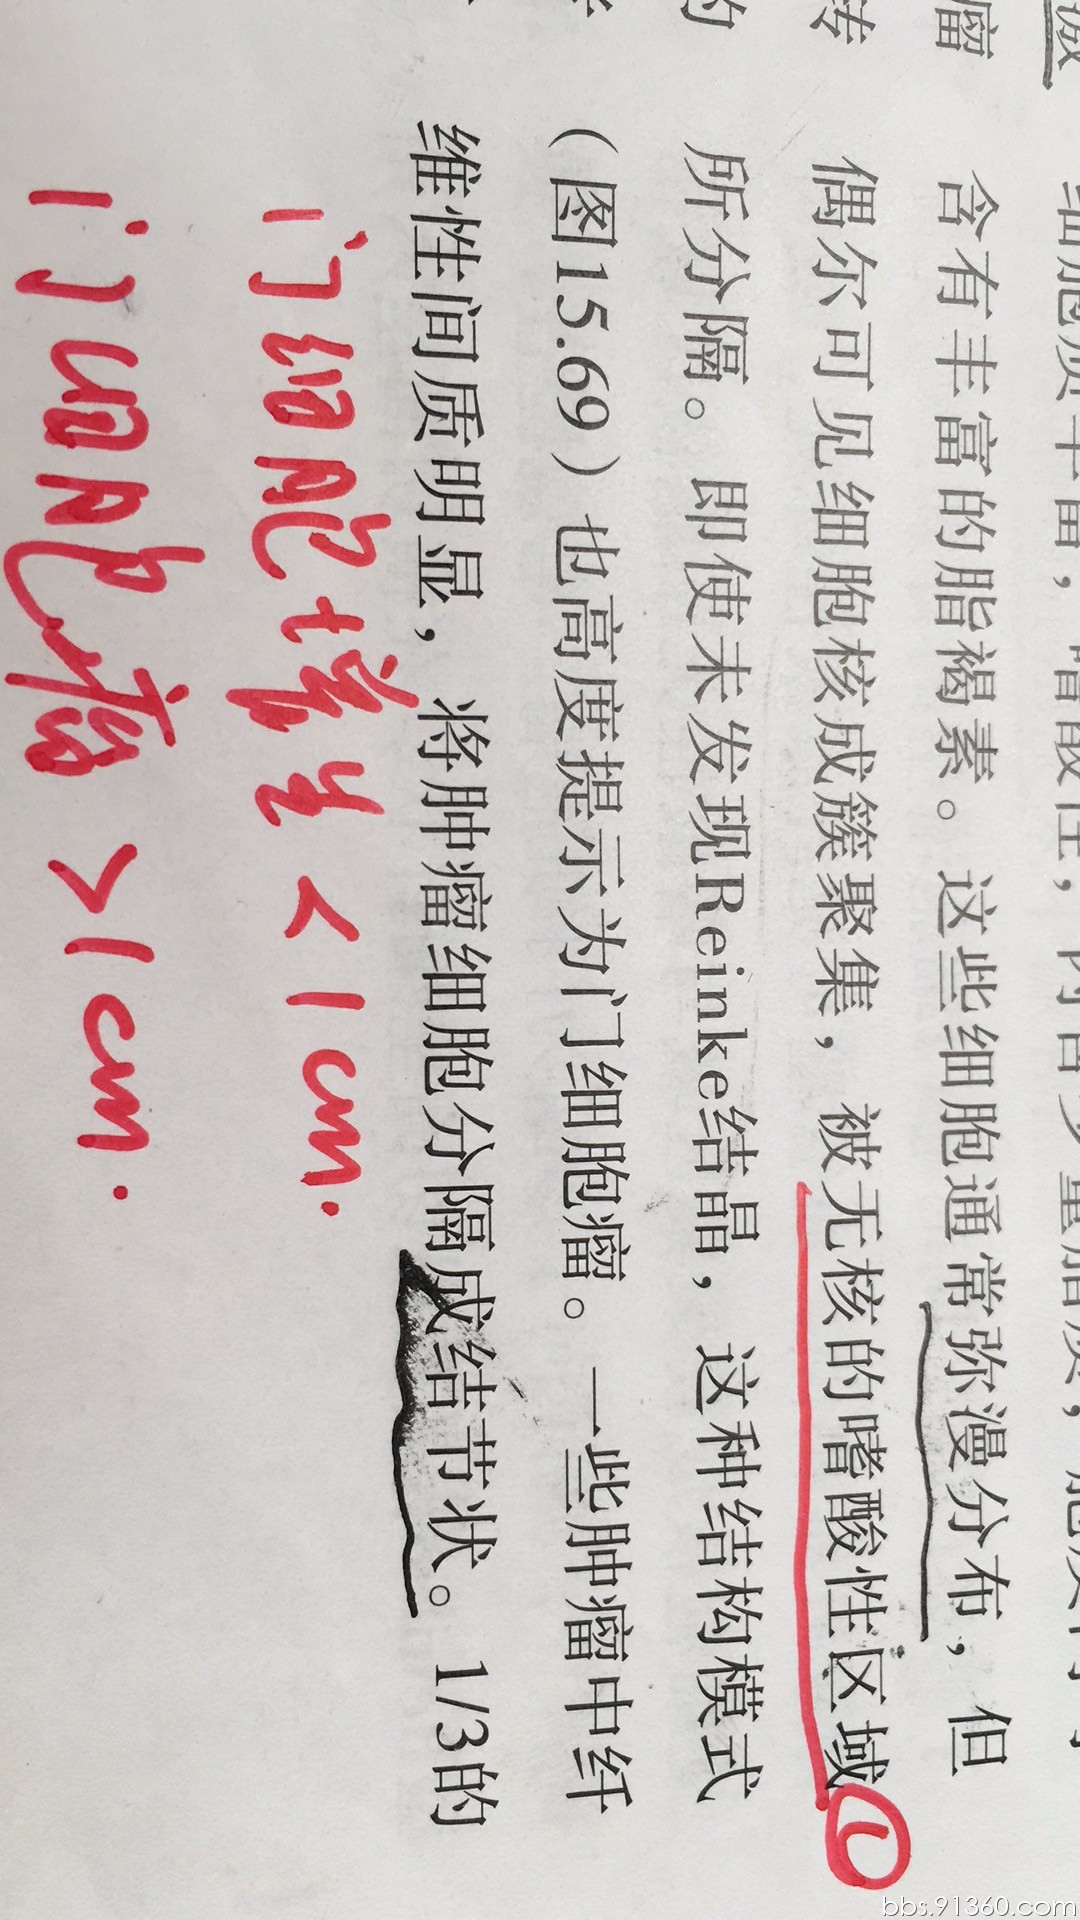 瘤 细胞质丰富，嗜酸性，内含少量脂质，胞质内可
瘤 含有丰富的脂褐素。这些细胞通常弥漫分布，但
转 偶尔可见细胞核成簇聚集，被无核的嗜酸性区域 ①
的 所分隔。即使未发现Reinke结晶，这种结构模式
（图15.69）也高度提示为门细胞瘤。一些肿瘤中纤
维性间质明显，将肿瘤细胞分隔成结节状。1/3的
门细胞增生 < 1cm.
门细胞瘤 > 1cm.
bbs.91360.com